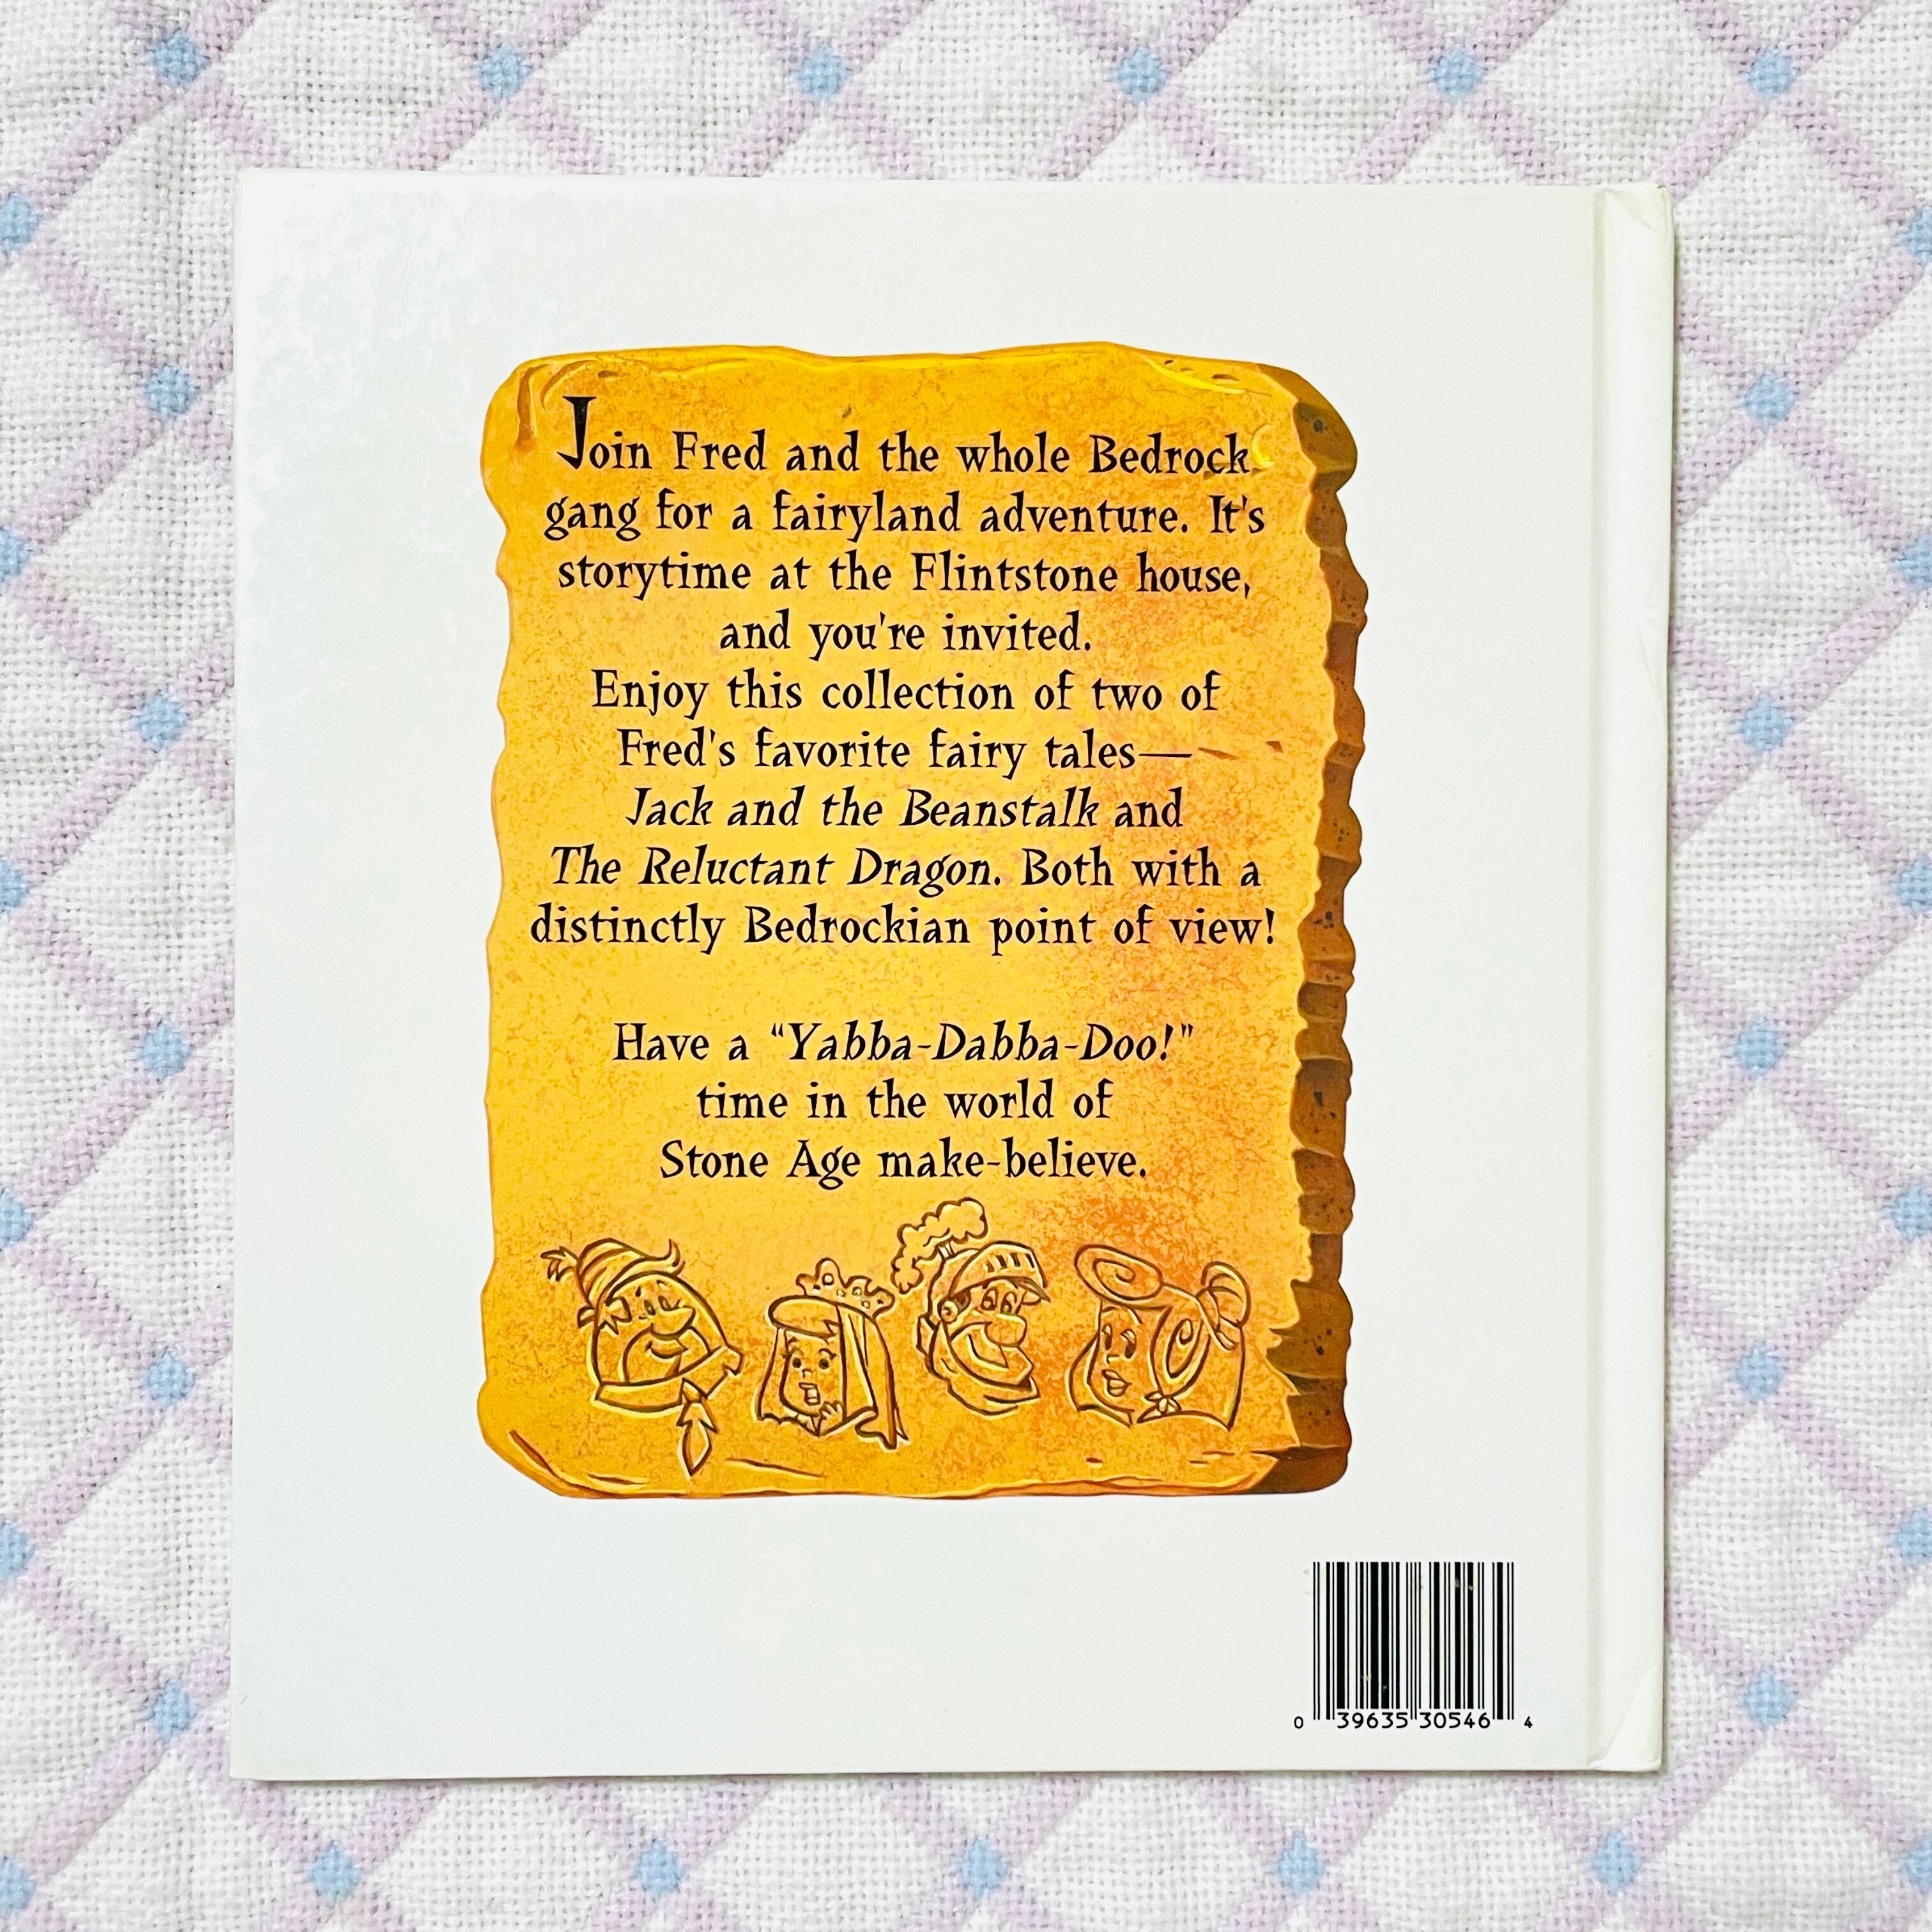 Join Fred and the whole Bedrock
gang for a fairyland adventure. It's
storytime at the Flintstone house,
and you're invited.
Enjoy this collection of two of
Fred's favorite fairy tales—
Jack and the Beanstalk and
The Reluctant Dragon. Both with a
distinctly Bedrockian point of view!
Have a “Yabba-Dabba-Doo!”
time in the world of
Stone Age make-believe.
0 39635 30546 4